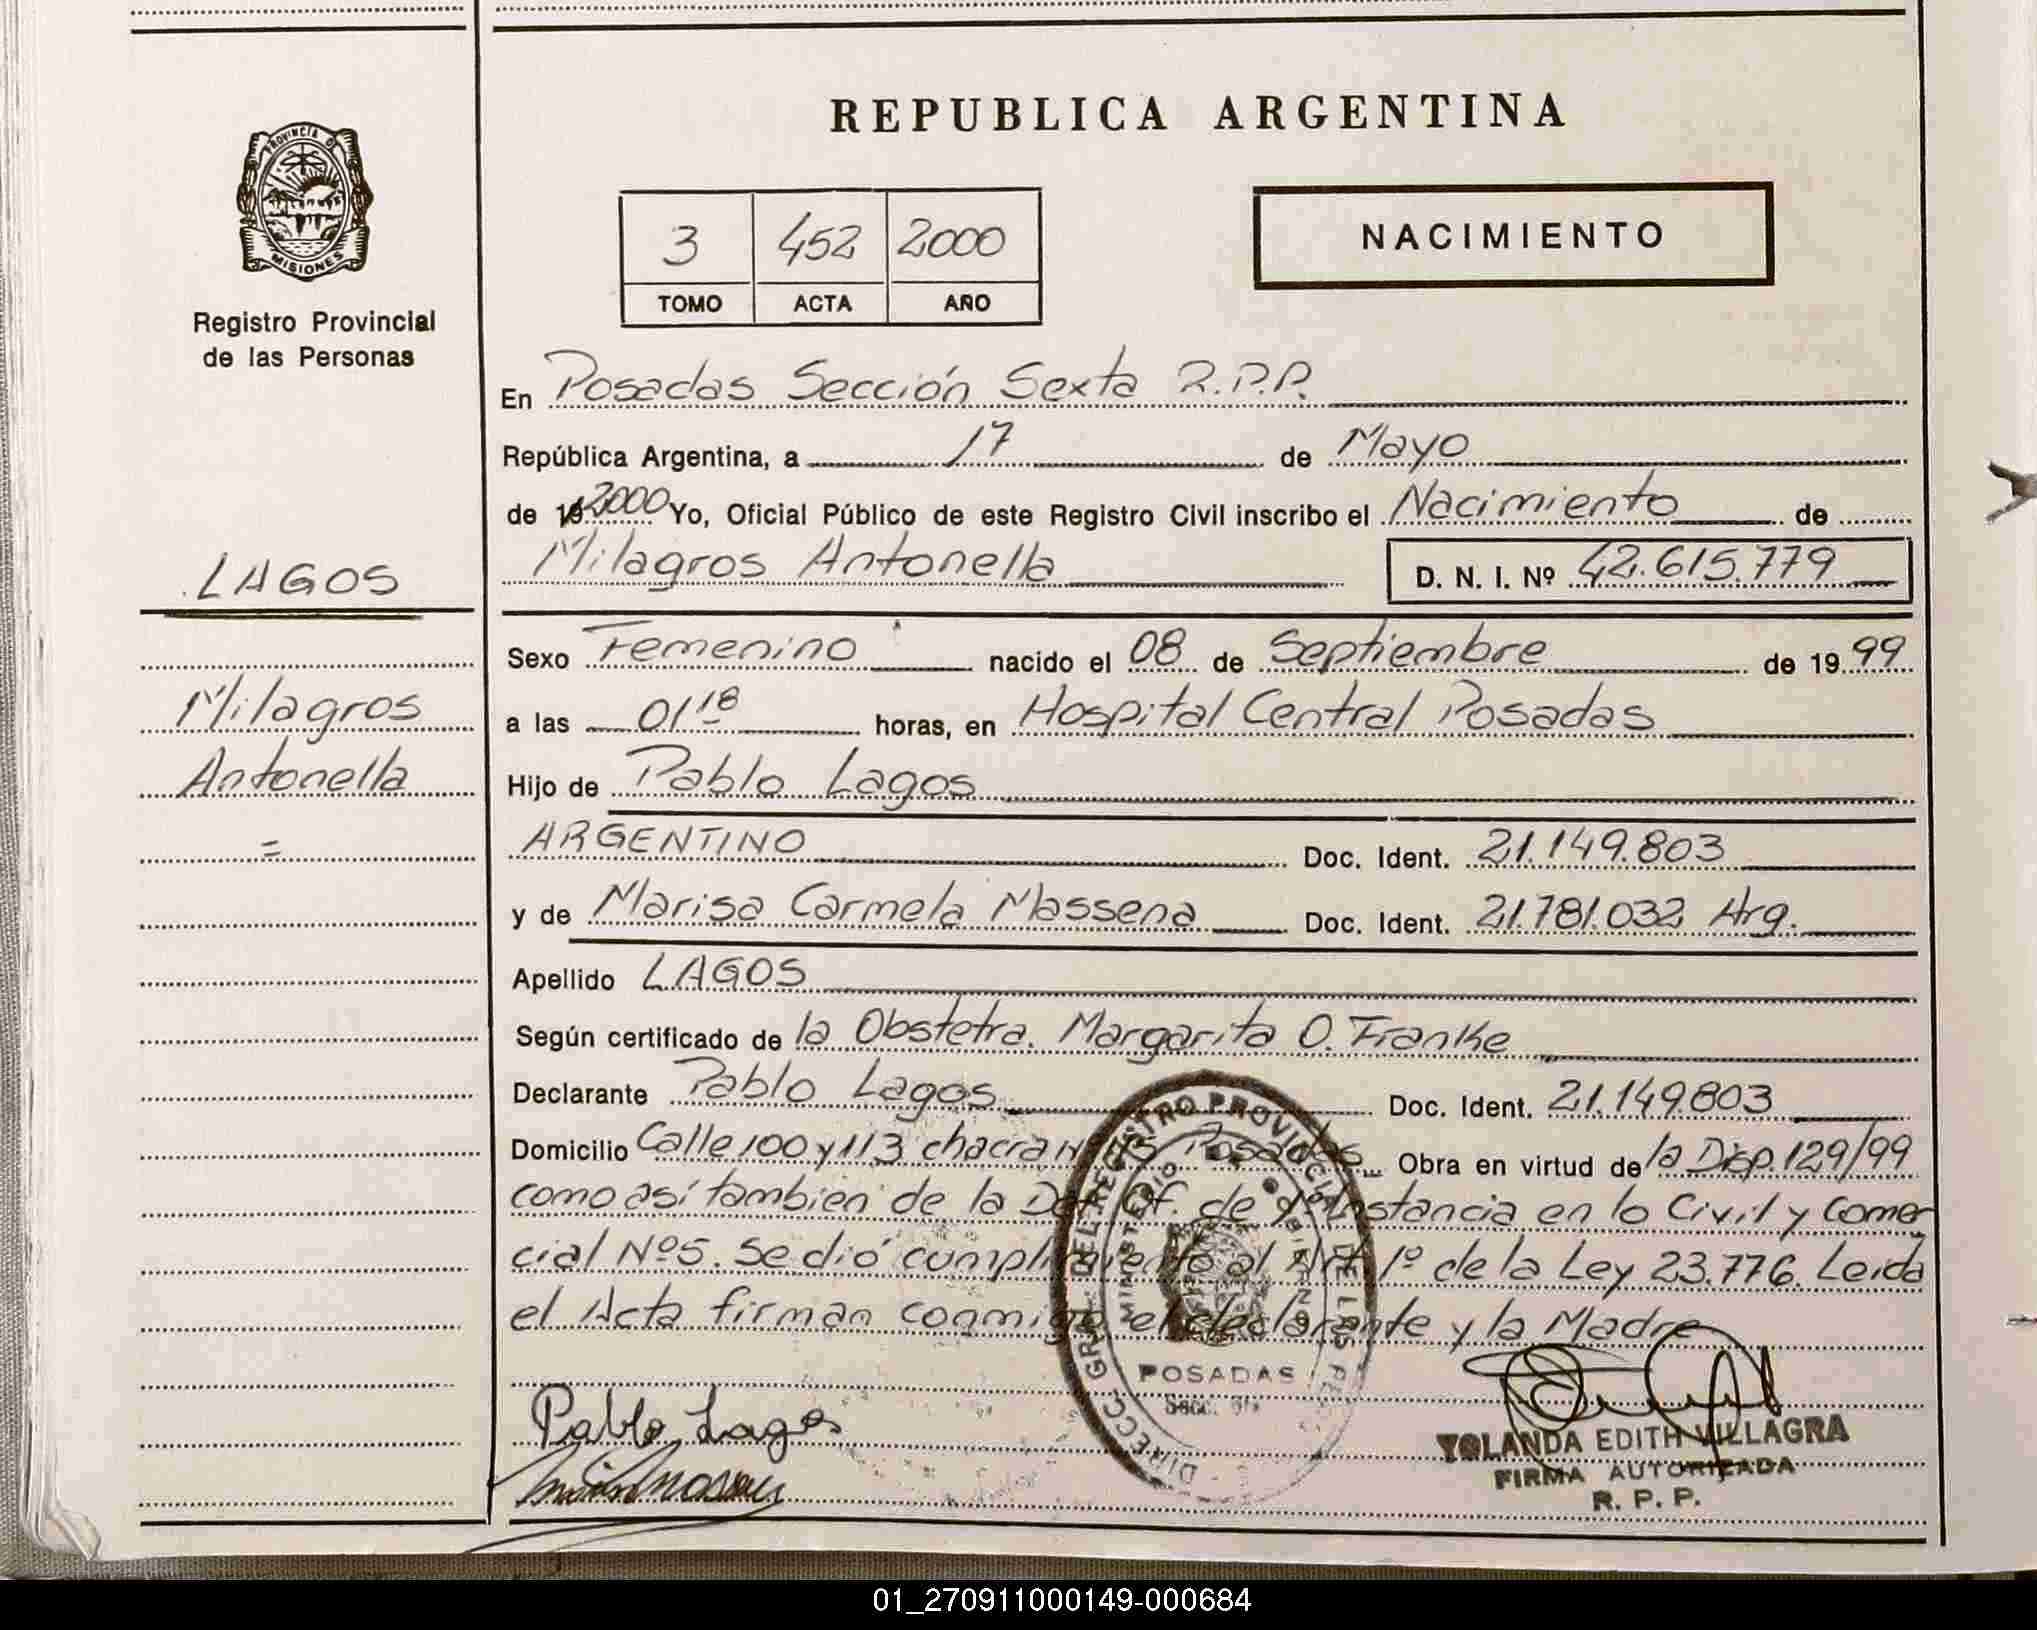 REPUBLICA ARGENTINA
PROVINCIA DE
MISIONES
Registro Provincial
de las Personas
3 452 2000
TOMO ACTA AÑO
NACIMIENTO
En Posadas Sección Sexta R.P.P.
República Argentina, a 17 de Mayo
de 19 2000 Yo, Oficial Público de este Registro Civil inscribo el Nacimiento de
Milagros Antonella D. N. I. Nº 42.615.779
LAGOS
Milagros
Antonella
=
Sexo Femenino nacido el 08 de Septiembre de 19 99
a las 01 18 horas, en Hospital Central Posadas
Hijo de Pablo Lagos
ARGENTINO Doc. Ident. 21.149.803
y de Marisa Carmela Massena Doc. Ident. 21.781.032 Arg.
Apellido LAGOS
Según certificado de la Obstetra. Margarita O. Franke
Declarante Pablo Lagos Doc. Ident. 21.149.803
Domicilio Calle 100 y 113 chacra Posadas Obra en virtud de la Disp. 129/99
como así tambien de la Def. Of. de Instancia en lo Civil y Comer
cial Nº 5. Se dió cumplimiento al Art 1º de la Ley 23.776. Leida
el Acta firman conmigo el declarante y la Madre
DIRECC. GRAL. DEL REGISTRO PROVINCIAL DE LAS
MINISTERIO DE GOBIERNO
POSADAS
Secc.
Pablo Lagos
YOLANDA EDITH VILLAGRA
FIRMA AUTORIZADA
R. P. P.
01_270911000149-000684